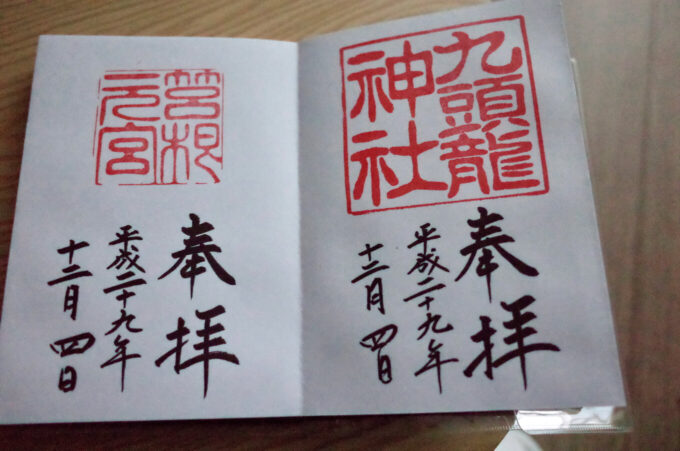 九頭龍
神社
奉拝
平成二十九年
十二月四日
筥根
元宮
奉拝
平成二十九年
十二月四日